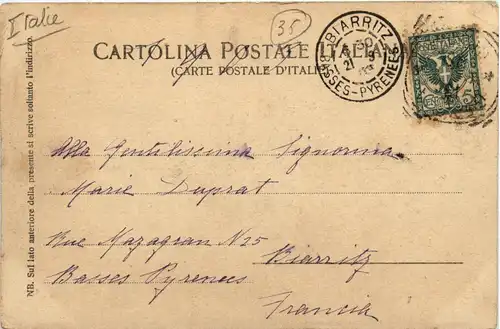 Italie
35
CARTOLINA POSTALE ITALIANA
(CARTE POSTALE D'ITALIE)
BIARRITZ
BSSES-PYRENEES
NB. Sul lato anteriore della presente si scrive soltanto l'indirizzo.
Alla Gentilissima Signorina
Marie Duprat
Rue Mazagran N 25
Biarritz
Basses Pyrenees
Francia